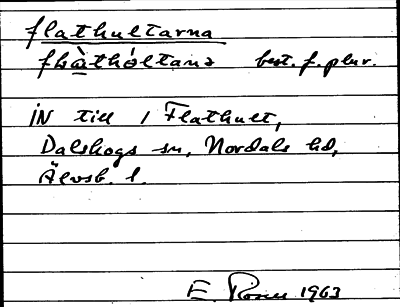 flathultarna
flàthóltana best. f. plur.
IN till 1 Flathult,
Dalskogs sn, Nordals hd,
Älvsb. l.
E. 1963